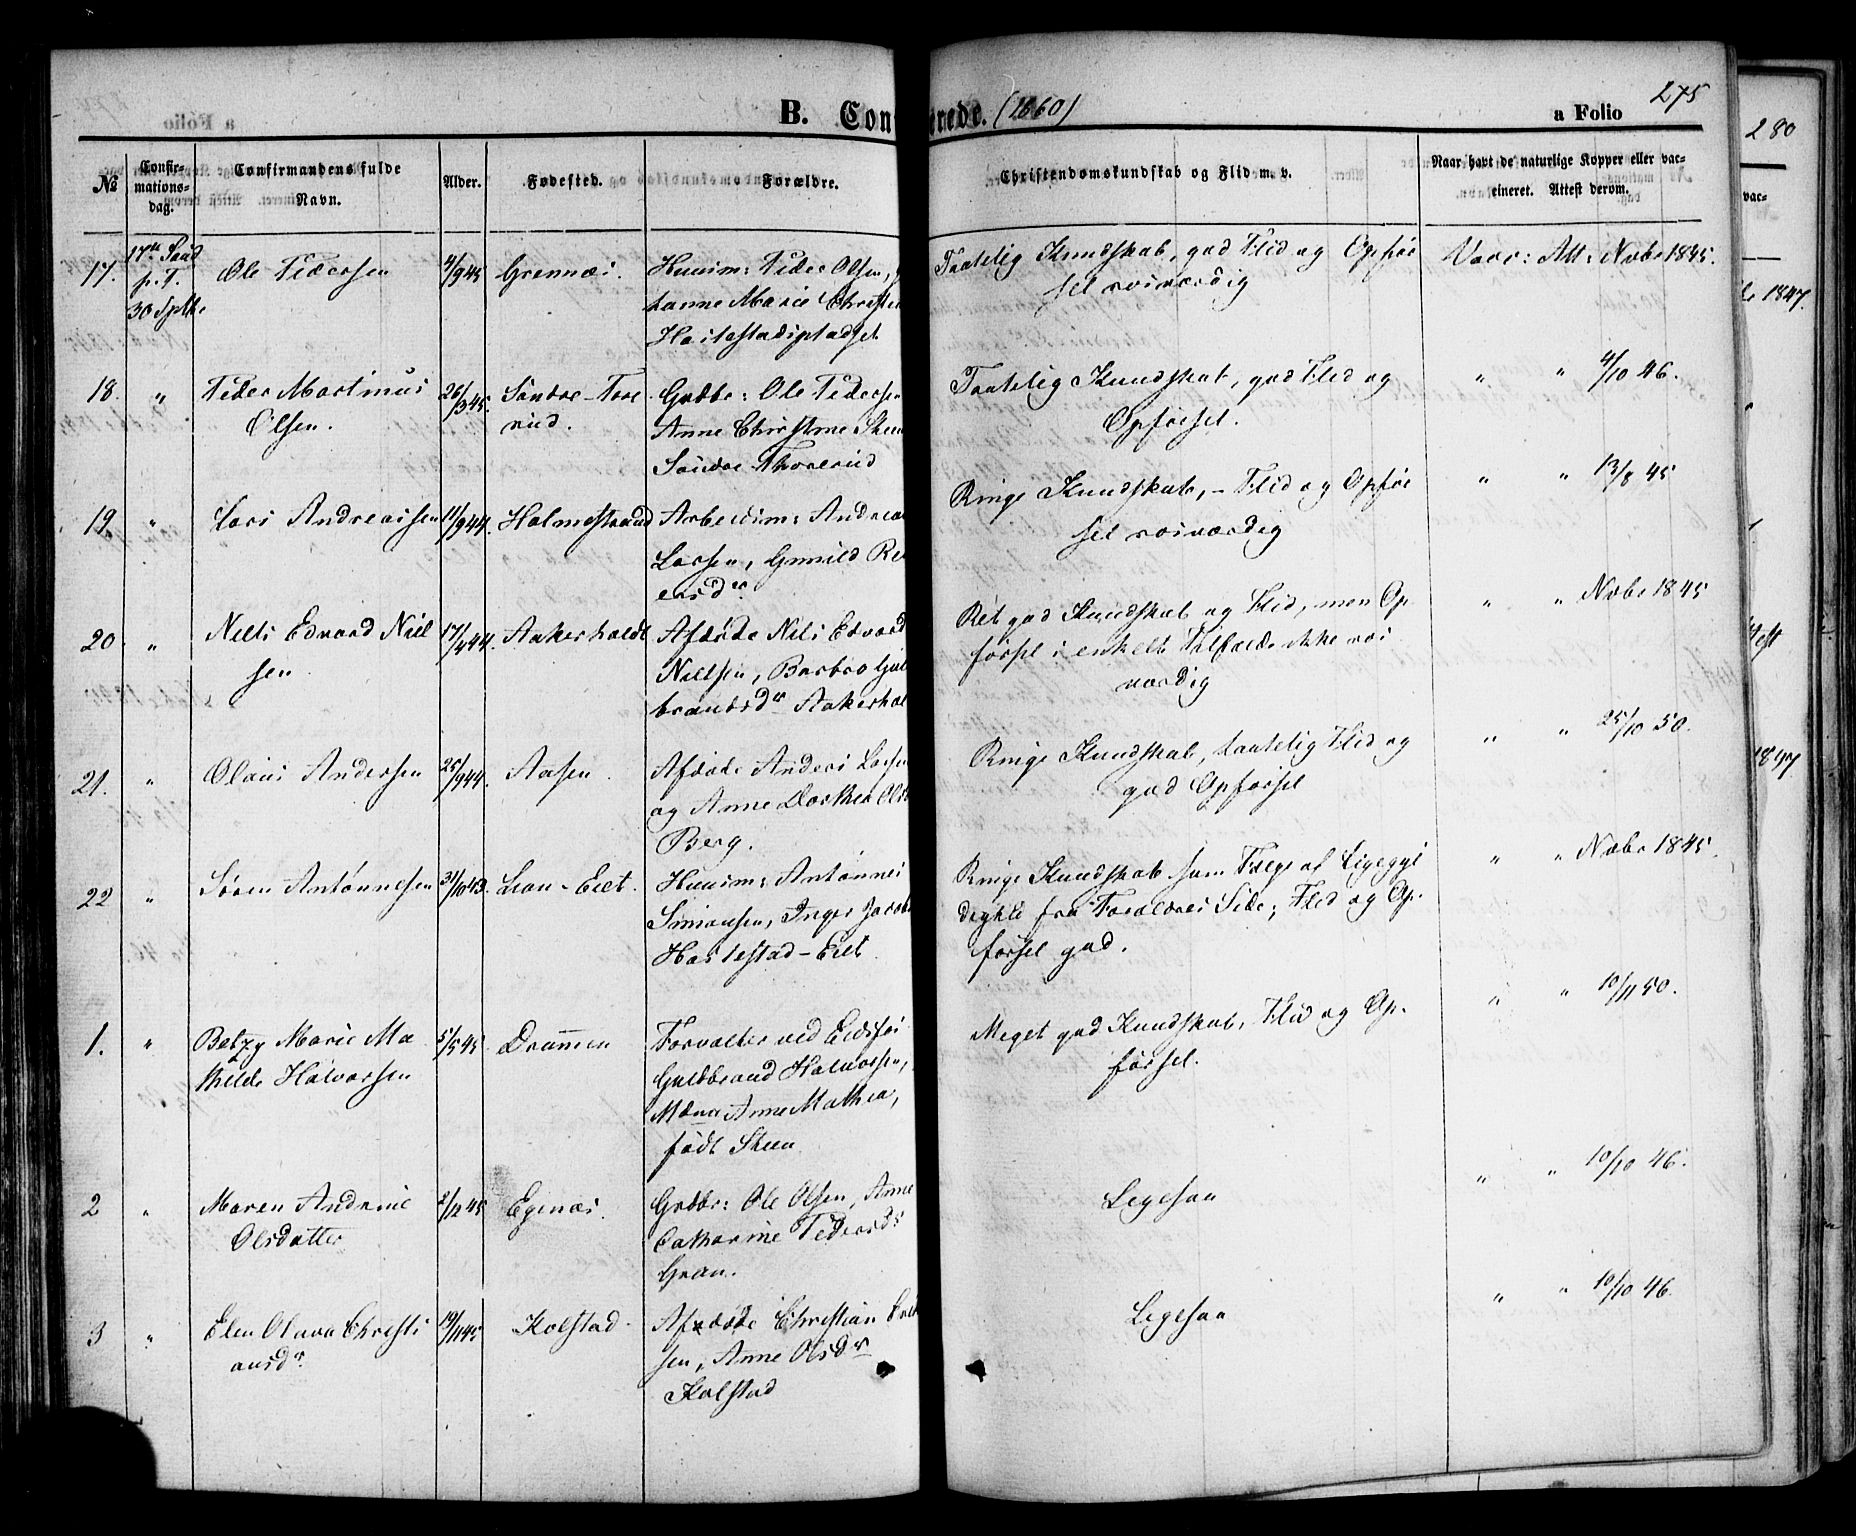 B. Con
erede. (1860)
a Folio
275
280
№
Confir-
mations-
dag.
Confirmandens fulde
Navn.
Alder.
Fødested.
Forældre.
Christendomskundskab og Flid m. v.
Naar havt de naturlige Kopper eller vac-
cineret. Attest derom.
vac-
17.
p. T.
30 Sptbr
Ole Pedersen
4/9 45
Grennæs.
Huusm: Peder Olsen,
hanne Marie Christe
Taalelig Kundskab, god Flid og Opfør
sel rosværdig
Vacc: Att: Novbr 1845.
1847.
18.
"
Peder Martinus
Olsen.
26/3 45.
Søndre-Tore
rud.
Grdbr: Ole Pedersen
Anne Christine Steen
Søndre Thorerud
Taalelig Kundskab, god Flid og
Opførsel.
" " 4/10 46.
19.
"
Lars Andreassen
11/9 44.
Holmestrand
Arbeidsm: Andreas
Larsen, Gunild Re
ersdr
Ringe Kundskab, - Flid og Opfør
sel rosværdig
" " 13/8 45
20
"
Niels Edvard Niel
sen
17/4 44.
Aakerholdt
Afdøde Nils Edvard
Nielsen, Barbro Gul
brandsdr Aakerhol
Ret god Kundskab og Flid, men Op
førsel i enkelt Tilfælde ikke ros
værdig
" " Novbr 1845
21.
"
Olaus Andersen
25/9 44.
Aasen
Afdøde Anders Larsen
og Anne Dorthea Ols
Berg.
Ringe Kundskab, taalelig Flid og
god Opførsel
" " 25/10 50.
1847
22
"
Søren Antonnesen
31/10 43.
Leon-Eiet.
Huusm: Antonnes
Simonsen, Inger Jacobs
Harlestad-Eiet
Ringe Kundskab som Følge af Ligegyl
dighed fra Forældres Side; Flid og Op-
førsel god.
" " Novbr 1845.
1.
"
Betzy Marie Ma
thilde Halvorsen
5/5 45
Drammen
Forvalter ved Eidsfos
Guldbrand Halvorsen,
Anne Mathea,
født Steen
Meget god Kundskab, Flid og Op-
førsel.
" " 10/11 50.
2
"
Maren Andrine
Olsdatter
2/12 45
Egenæs.
Grdbr: Ole Olsen, Anne
Catharine Pedersdr
Gran.
Ligesaa
" " 10/10 46.
3
"
Elen Olava Christi
ansdr
19/11 45
Kolstad
Afdøde Christian
sen, Anne Olsdr
Kolstad
Ligesaa
" " 10/10 46.